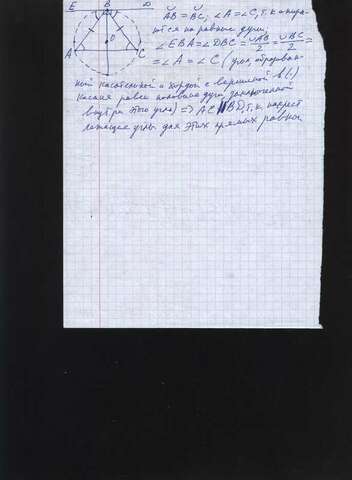 E B D
A O C
◡AB = ◡BC; ∠A = ∠C, т. к. опира-
ются на равные дуги,
∠EBA = ∠DBC = ◡AB/2 = ◡BC/2 =
= ∠A = ∠C (угол, образован-
ный касательной и хордой с вершиной в (·)
касания равен половине дуги, заключенной
внутри этого угла) => AC ∥ BD, т. к. накрест
лежащие углы для этих прямых равны